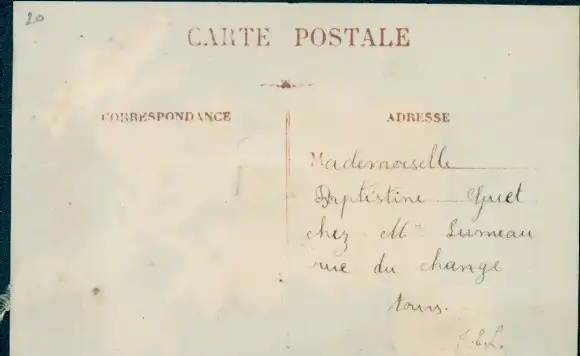 20
CARTE POSTALE
CORRESPONDANCE
ADRESSE
Mademoiselle
Baptistine Guet
chez Mr Lumeau
rue du change
tours.
I.&L.